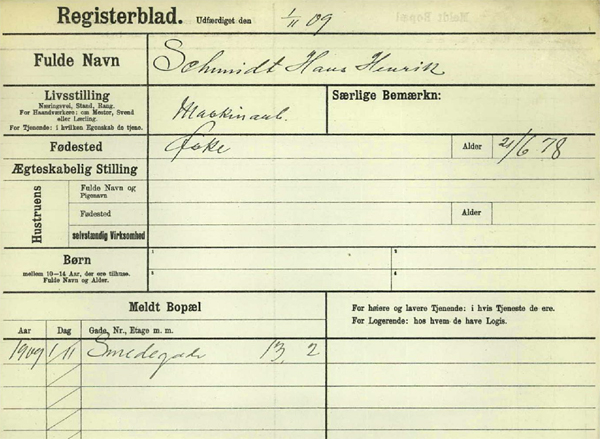 Registerblad. Udfærdiget den 1/11 09
Fulde Navn Schmidt Hans Henrik
Livsstilling
Næringsvei, Stand, Rang.
For Haandværkere: om Mester, Svend
eller Lærling.
For Tjenende: i hvilken Egenskab de tjene.
Maskinarb.
Særlige Bemærkn:
Fødested Alder 21/6 78
Ægteskabelig Stilling
Hustruens
Fulde Navn og
Pigenavn
Fødested Alder
selvstændig Virksomhed
Børn
mellem 10–14 Aar, der ere tilhuse.
Fulde Navn og Alder.
1 2
3 4
Meldt Bopæl
For høiere og lavere Tjenende: i hvis Tjeneste de ere.
For Logerende: hos hvem de have Logis.
Aar Dag Gade, Nr., Etage m. m.
1909 1/11 Smedegade 13. 2